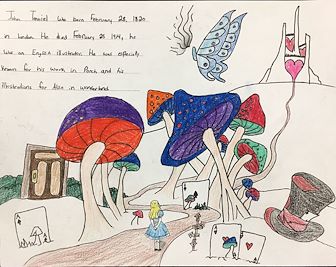 John Tenniel was born February 28, 1820
in London He died February 25 1914, he
was an English illustrator. He was especially
known for his work in Punch and his
illustrations for Alice in wonderland